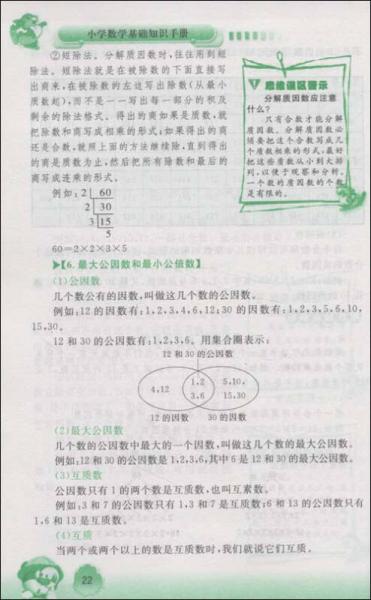 小学数学基础知识手册
②短除法。分解质因数时,往往用到短
除法。短除法就是在被除数的下面直接写
出商来,在被除数的左边写出除数(从最小
质数起),而不是一一写出每一部分的积及
剩余的除法格式。得出的商如果是质数,就
把除数和商写成相乘的形式;如果得出的商
还是合数,就照上面的方法继续除,直到得出
的商是质数为止,然后把所有除数和最后的
商写成连乘的形式。
思维误区警示
分解质因数应注意
什么?
只有合数才能分解
质因数。分解质因数必
须要把这个合数写成几
个质数相乘的形式,最好
把这些质数从小到大排
列,以便于观察和分析。
一个数的质因数的个数
是有限的。
例如:2 60
2 30
3 15
5
60=2×2×3×5
【6.最大公因数和最小公倍数】
(1)公因数
几个数公有的因数,叫做这几个数的公因数。
例如:12的因数有:1,2,3,4,6,12;30的因数有:1,2,3,5,6,10,
15,30。
12和30的公因数有:1,2,3,6。用集合圈表示:
12和30的公因数
4,12 1,2 5,10,
3,6 15,30
12的因数 30的因数
(2)最大公因数
几个数的公因数中最大的一个因数,叫做这几个数的最大公因数。
例如:12和30的公因数是1,2,3,6,其中6是12和30的最大公因数。
(3)互质数
公因数只有1的两个数是互质数,也叫互素数。
例如:3和7的公因数只有1,3和7是互质数;6和13的公因数只有
1,6和13是互质数。
(4)互质
当两个或两个以上的数是互质数时,我们就说它们互质。
22